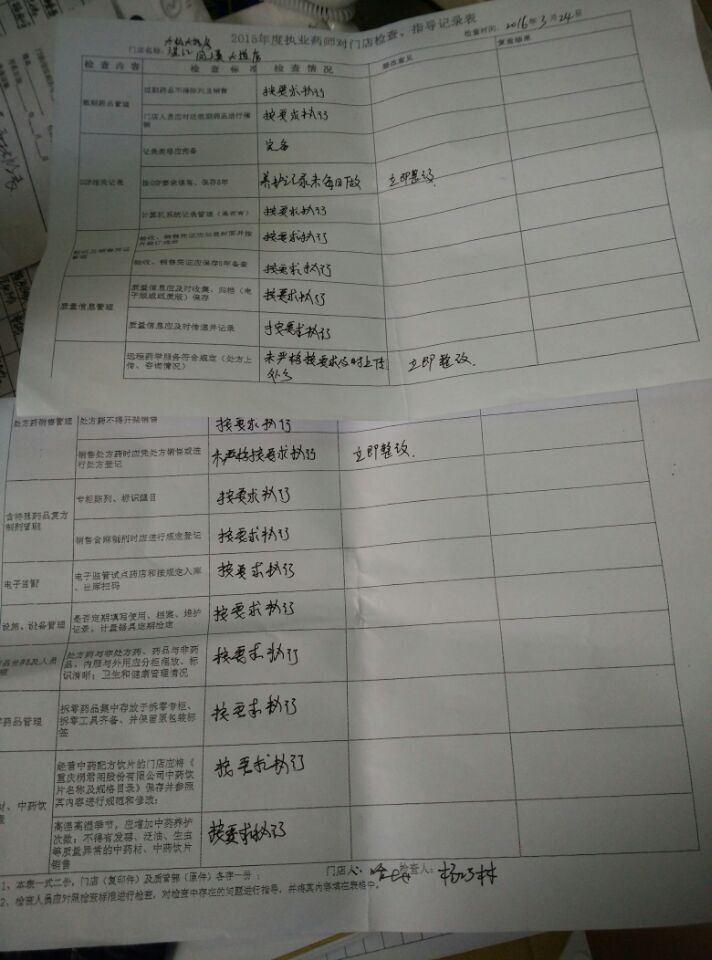 2015年度执业药师对门店检查，指导记录表
门店名称：
检查时间：2016年3月24日
检查内容 检查标准 检查情况 整改意见 复查结果
近期药品管理 过期药品不得陈列及销售 按要求执行
门店人员应对近效期药品进行催销 按要求执行
GSP相关记录 记录表格应完备 完备
按GSP要求填写、保存5年 养护记录未每日做 立即整改.
计算机系统记录管理（是否有） 按要求执行
验收、销售凭证应加盖封面并按月装订成册 按要求执行
验收、销售凭证应保存5年备查 按要求执行
质量信息管理 质量信息应及时收集、归档（电子版或纸质版）保存 按要求执行
质量信息应及时传递并记录 按要求执行
远程药学服务符合规定（处方上传、咨询情况） 未严格按要求及时上传处方 立即整改.
处方药销售管理 处方药不得开架销售 按要求执行
销售处方药时应凭处方销售或进行处方登记 未严格按要求执行 立即整改.
含特殊药品复方制剂管理 专柜陈列、标识醒目 按要求执行
销售含麻制剂时应进行规定登记 按要求执行
电子监管 电子监管试点药店和按规定入库、出库扫码 按要求执行
设施、设备管理 是否定期填写使用、档案、维护记录，计量器具定期检定 按要求执行
处方药与非处方药、药品与非药品、内服与外用应分柜摆放、标识清晰；卫生和健康管理情况 按要求执行
零药品管理 拆零药品集中存放于拆零专柜、拆零工具齐备、并保留原包装标签 按要求执行
材、中药饮 经营中药配方饮片的门店应将《重庆桐君阁股份有限公司中药饮片名称及规格目录》保存并参照其内容进行规范和修改； 按要求执行
高温高湿季节，应增加中药养护次数；不得有发霉、泛油、生虫等质量异常的中药材、中药饮片销售 按要求执行
1、本表一式二份，门店（复印件）及质管部（原件）各存一份；
门店人： 检查人：
2、检查人员应对照检查标准进行检查，对检查中存在的问题进行指导，并将其内容填在表格中。